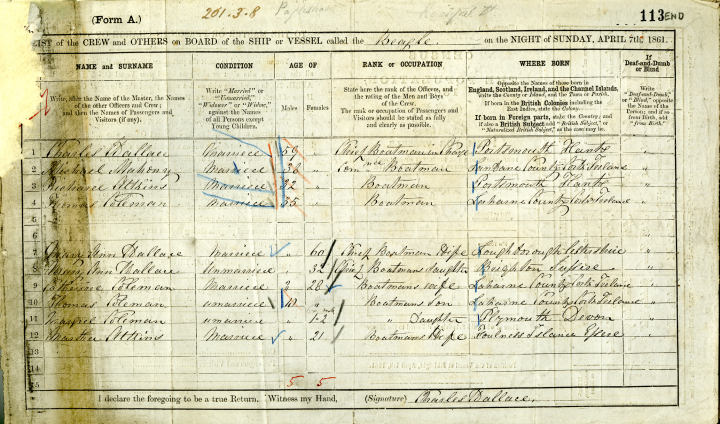 (Form A.) 201.3.8 113 END
LIST of the CREW and OTHERS on BOARD of the SHIP or VESSEL called the Beagle. on the NIGHT of SUNDAY, APRIL 7TH 1861.
NAME and SURNAME CONDITION AGE OF RANK or OCCUPATION WHERE BORN If Deaf-and-Dumb or Blind
Write, after the Name of the Master, the Names of the other Officers and Crew; and then the Names of Passengers and Visitors (if any).
Write "Married" or "Unmarried," "Widower" or "Widow," against the Names of all Persons except Young Children.
Males Females
State here the rank of the Officers, and the rating of the Men and Boys of the Crew. The rank or occupation of Passengers and Visitors should be stated as fully and clearly as possible.
Opposite the Names of those born in England, Scotland, Ireland, and the Channel Islands, write the County or Island, and the Town or Parish. If born in the British Colonies including the East Indies, state the Colony. If born in Foreign parts, state the Country; and if also a British Subject add "British Subject," or "Naturalized British Subject," as the case may be.
Write "Deaf-and-Dumb," or "Blind," opposite the Name of the Person; and if so from birth, add "from Birth."
1 Charles Wallace Married 56 " Chief Boatman in Charge Portsmouth Hants "
2 Mahony Married 36 " Com Boatman County Cork Ireland "
3 Richard Atkins Married 32 " Boatman Portsmouth Hants "
4 Thomas Coleman Married 35 " Boatman County Cork Ireland "
7 Ann Wallace Married " 60 Chief Boatman Wife Loughborough "
8 Mary Ann Wallace Unmarried " 32 Chief Boatmans Daughter Brighton Sussex "
9 Catherine Coleman Married 28 Boatmans wife County Cork Ireland "
10 Thomas Coleman unmarried 10 " Boatmans Son County Cork Ireland "
11 Coleman unmarried " " Daughter Plymouth Devon "
12 Martha Atkins Married " 21 Boatmans Wife Foulness Island Essex "
13
14
15 5 5
I declare the foregoing to be a true Return. Witness my Hand, (Signature) Charles Wallace.